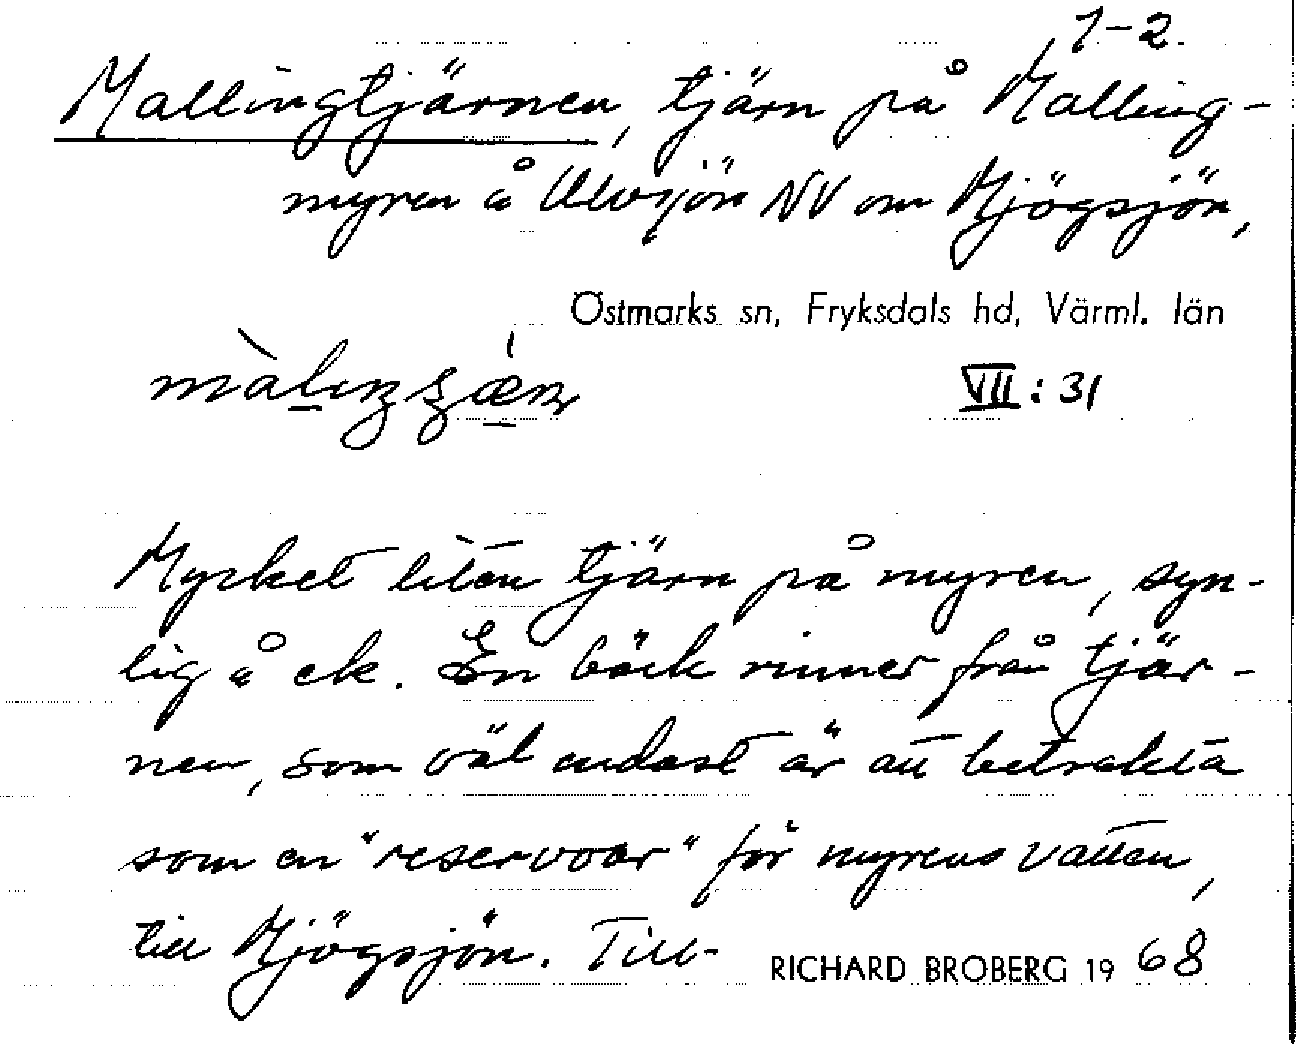 1-2.
Mallingtjärnen, tjärn på Malling-
myren å Ulvsjön NV om Mjögsjön,
Östmarks sn, Fryksdals hd, Värml. län
VII: 31
Mycket liten tjärn på myren, syn-
lig å ek. En bäck rinner från tjär-
nen, som väl endast är att betrakta
som en "reservoar" för myrens vatten,
till Mjögsjön. Till-
RICHARD BROBERG 1968